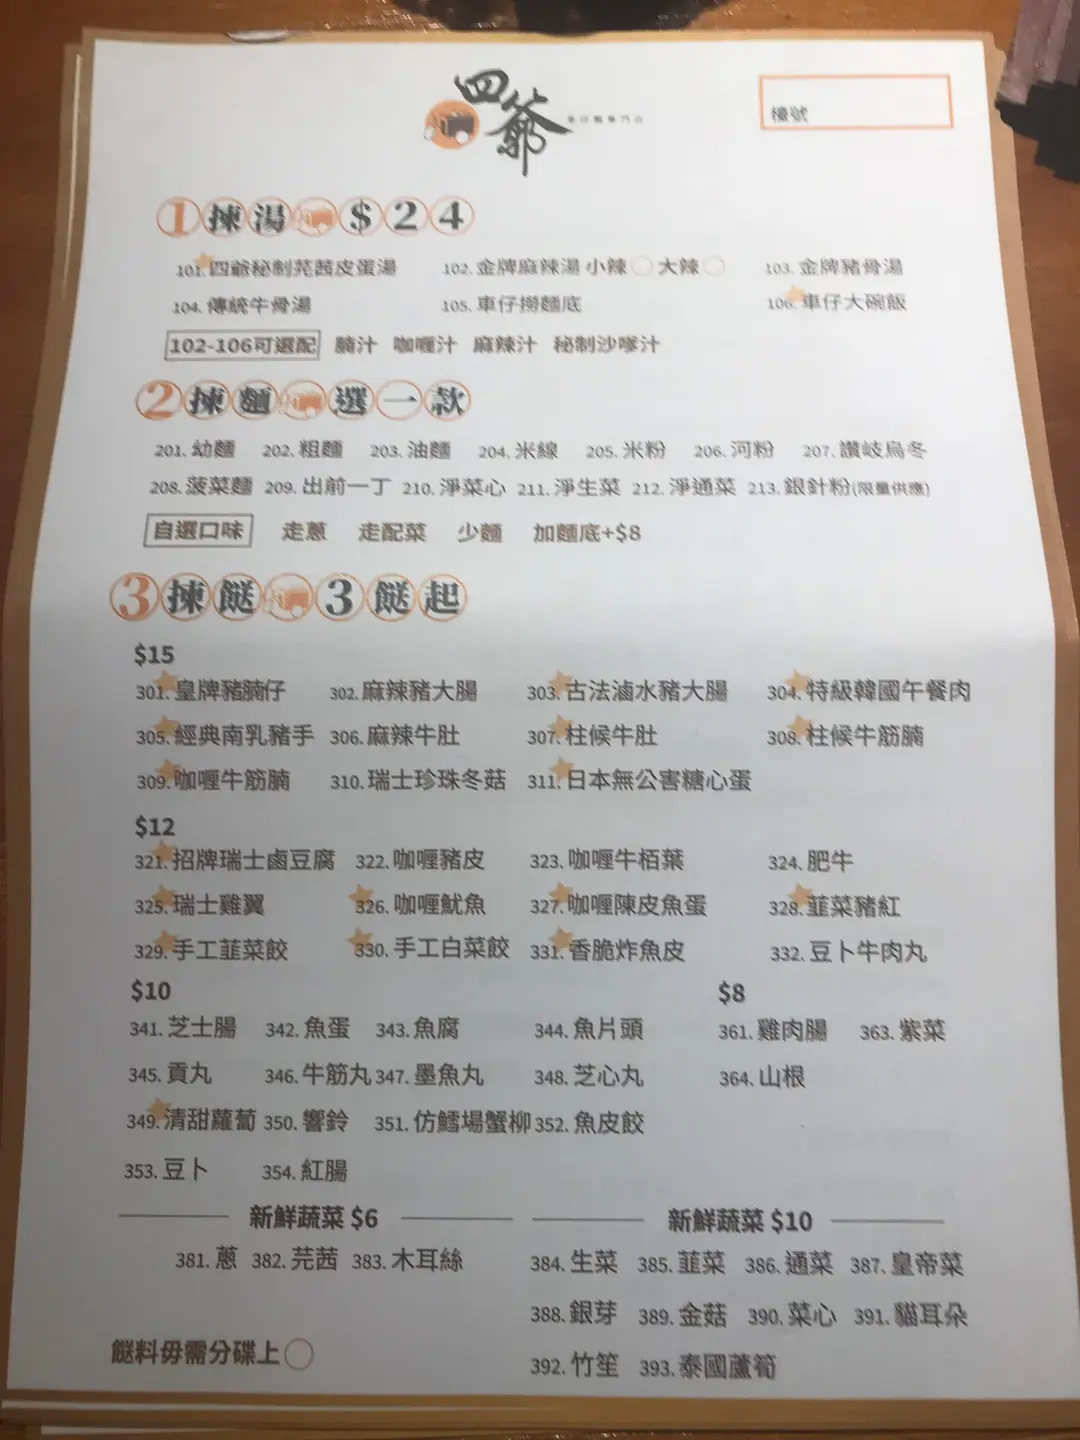 四爺 車仔麵專門店
檯號
1 揀湯 $24
101. 四爺秘制芫茜皮蛋湯 102. 金牌麻辣湯 小辣 大辣 103. 金牌豬骨湯
104. 傳統牛骨湯 105. 車仔撈麵底 106. 車仔大碗飯
102-106可選配 腩汁 咖喱汁 麻辣汁 秘制沙嗲汁
2 揀麵 選一款
201. 幼麵 202. 粗麵 203. 油麵 204. 米線 205. 米粉 206. 河粉 207. 讚岐烏冬
208. 菠菜麵 209. 出前一丁 210. 淨菜心 211. 淨生菜 212. 淨通菜 213. 銀針粉(限量供應)
自選口味 走蔥 走配菜 少麵 加麵底+$8
3 揀餸 3 餸起
$15
301. 皇牌豬腩仔 302. 麻辣豬大腸 303. 古法滷水豬大腸 304. 特級韓國午餐肉
305. 經典南乳豬手 306. 麻辣牛肚 307. 柱候牛肚 308. 柱候牛筋腩
309. 咖喱牛筋腩 310. 瑞士珍珠冬菇 311. 日本無公害糖心蛋
$12
321. 招牌瑞士鹵豆腐 322. 咖喱豬皮 323. 咖喱牛栢葉 324. 肥牛
325. 瑞士雞翼 326. 咖喱魷魚 327. 咖喱陳皮魚蛋 328. 韮菜豬紅
329. 手工韮菜餃 330. 手工白菜餃 331. 香脆炸魚皮 332. 豆卜牛肉丸
$10 $8
341. 芝士腸 342. 魚蛋 343. 魚腐 344. 魚片頭 361. 雞肉腸 363. 紫菜
345. 貢丸 346. 牛筋丸 347. 墨魚丸 348. 芝心丸 364. 山根
349. 清甜蘿蔔 350. 響鈴 351. 仿鱈場蟹柳 352. 魚皮餃
353. 豆卜 354. 紅腸
新鮮蔬菜 $6 新鮮蔬菜 $10
381. 蔥 382. 芫茜 383. 木耳絲 384. 生菜 385. 韮菜 386. 通菜 387. 皇帝菜
388. 銀芽 389. 金菇 390. 菜心 391. 貓耳朵
餸料毋需分碟上
392. 竹笙 393. 泰國蘆筍